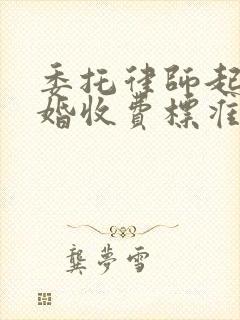 委托律師起
婚收費標准
龔夢雪